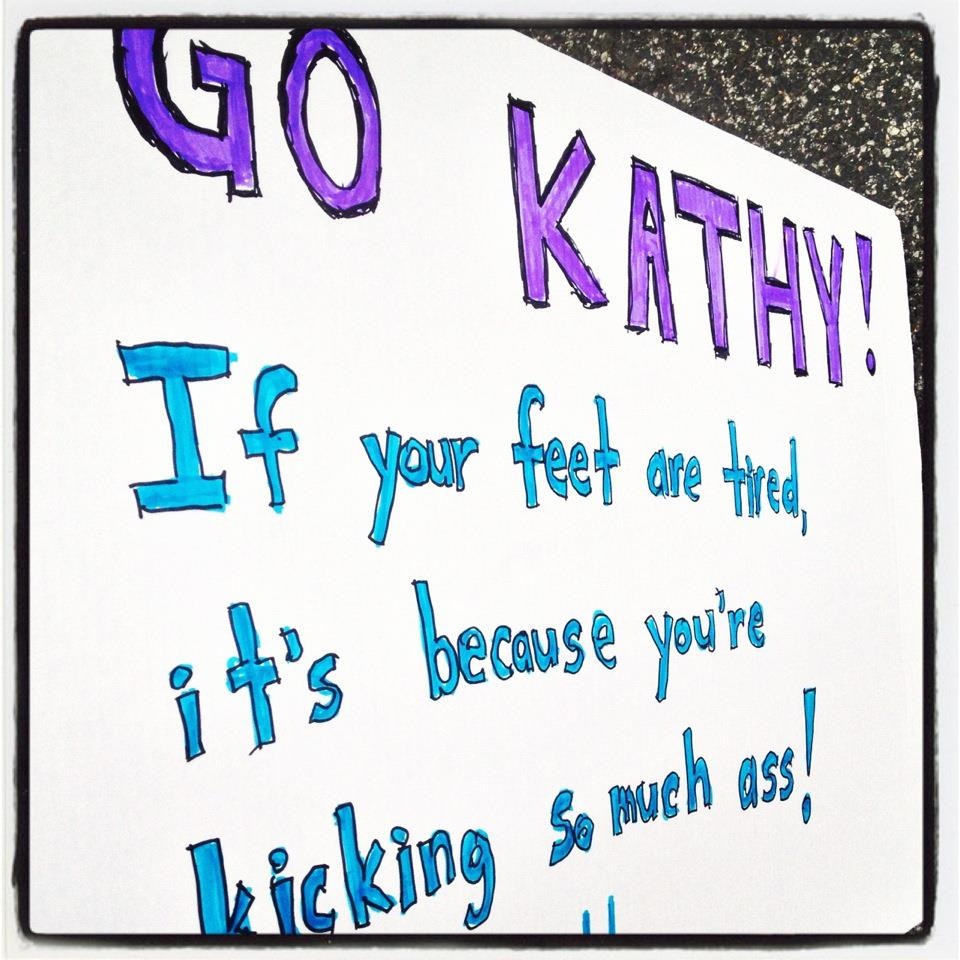 GO KATHY!
If your feet are tired,
it's because you're
kicking so much ass!